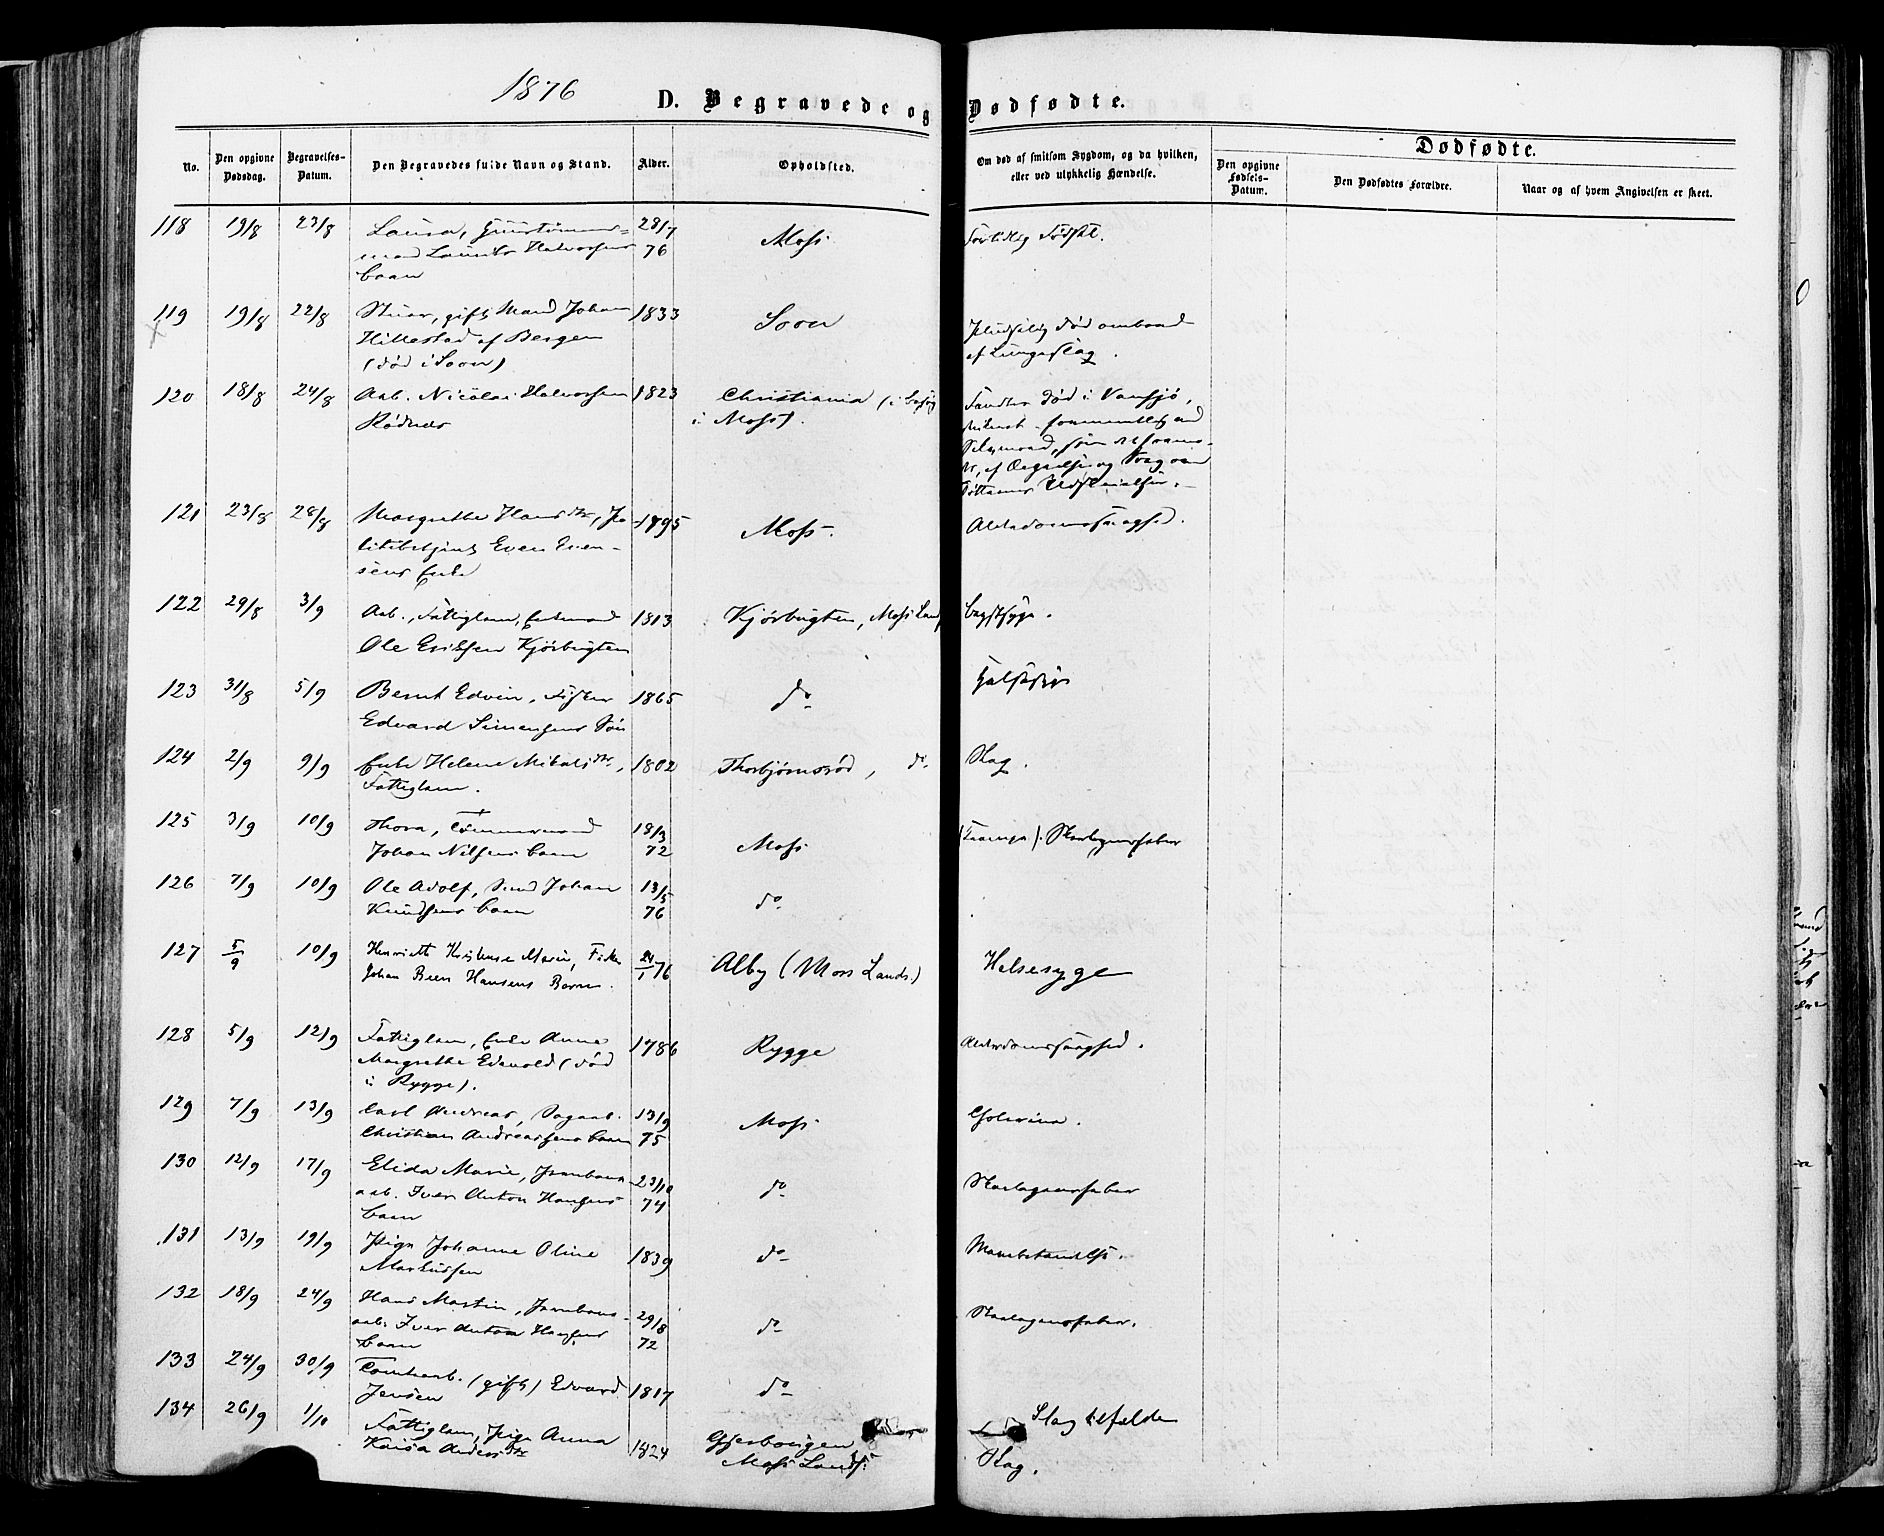 1876
D. Begravede og Dødfødte.
No.
Den opgivne Dødsdag.
Begravelses-Datum.
Den Begravedes fulde Navn og Stand.
Alder.
Opholdsted.
Om død af smitsom Sygdom, og da hvilken, eller ved ulykkelig Hændelse.
Dødfødte.
Den opgivne Fødsels-Datum.
Den Dødfødtes Forældre.
Naar og af hvem Angivelsen er skeet.
118 19/8 23/8 Laura, 28/7 Moss For tidlig Fødsel.
Laurits Halvorsens 76
barn
119 19/8 22/8 gift Mand Johan 1833 Soon Pludselig død ombord
Hillestad af Bergen af Lungeslag.
(død i Soon)
120 18/8 24/8 Arb. Nicolai Halvorsen 1823 Christiania (i besøg Funden død i Vansjø,
Rødnes i Moss).
121 23/8 28/8 Margrethe Hansdtr, Po- 1795 Moss. Alderdomssvaghed.
litibetjent Even Even-
sens Enke
122 29/8 3/9 Arb., Fattiglem, Enkemand 1813 Kjørbugten, Moss Lands Brystsyge.
Ole Eriksen Kjørbugten
123 31/8 5/9 Bernt Edvin, Fisker 1865 do Halssyge
Edvard Simensens Søn
124 2/9 9/9 Enke Helene Mikalsdtr, 1802 Thorbjørnsrød, do Slag.
Fattiglem.
125 3/9 10/9 Thora, Tømmermand 18/3 Moss (Krampe) Skarlagensfeber
Johan Nilsens barn 72
126 7/9 10/9 Ole Adolf, Smed Johan 13/5 do
Knudsens barn 76
127 5/9 10/9 Henriette Marie, Fisker 24/1 76 Alby (Moss Lands.) Halsesyge
Johan Hansens Barn.
128 5/9 12/9 Fattiglem, Enke Anne 1786 Rygge Alderdomssvaghed.
Margrethe Edevold (død
i Rygge).
129 7/9 13/9 Carl Andreas, Sagarb. 13/9 Moss Cholerine.
Christian Andreassens barn 75
130 12/9 17/9 Elida Marie, Jernbane- 23/10 do Skarlagensfeber
arb. Iver Anton Hansens 74
barn
131 13/9 19/9 Pige Johanne Oline 1839 do
Markussen
132 18/9 24/9 Hans Martin, Jernbane- 29/8 do Skarlagensfeber.
arb. Iver Anton Hansens 72
barn
133 24/9 30/9 Tomtearb. (gift) Edvard 1817 do Slagtilfælde
Jensen
134 26/9 1/10 Fattiglem, Pige Anna 1824 Slag.
Kaisa Andersdtr Moss Lands.